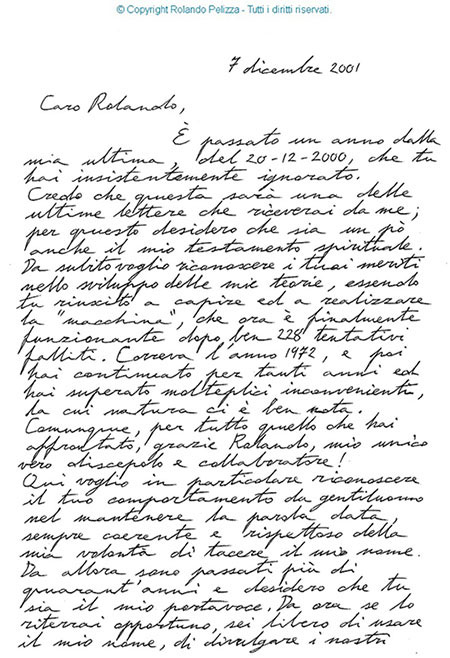 © Copyright Rolando Pelizza - Tutti i diritti riservati.
7 dicembre 2001
Caro Rolando,
È passato un anno dalla
mia ultima, del 20-12-2000, che tu
hai insistentemente ignorato.
Credo che questa sarà una delle
ultime lettere che riceverai da me;
per questo desidero che sia un pò
anche il mio testamento spirituale.
Da subito voglio riconoscere i tuoi meriti
nello sviluppo delle mie teorie, essendo
tu riuscito a capire ed a realizzare
la "macchina", che ora è finalmente
funzionante dopo ben 228 tentativi
falliti. Correva l'anno 1972, e poi
hai continuato per tanti anni ed
hai superato molteplici inconvenienti,
la cui natura ci è ben nota.
Comunque, per tutto quello che hai
affrontato, grazie Rolando, mio unico
vero discepolo e collaboratore!
Qui voglio in particolare riconoscere
il tuo comportamento da gentiluomo
nel mantenere la parola data,
sempre coerente e rispettoso della
mia volontà di tacere il mio nome.
Da allora sono passati più di
quarant'anni e desidero che tu
sia il mio portavoce. Da ora se lo
riterrai opportuno, sei libero di usare
il mio nome, di divulgare i nostri